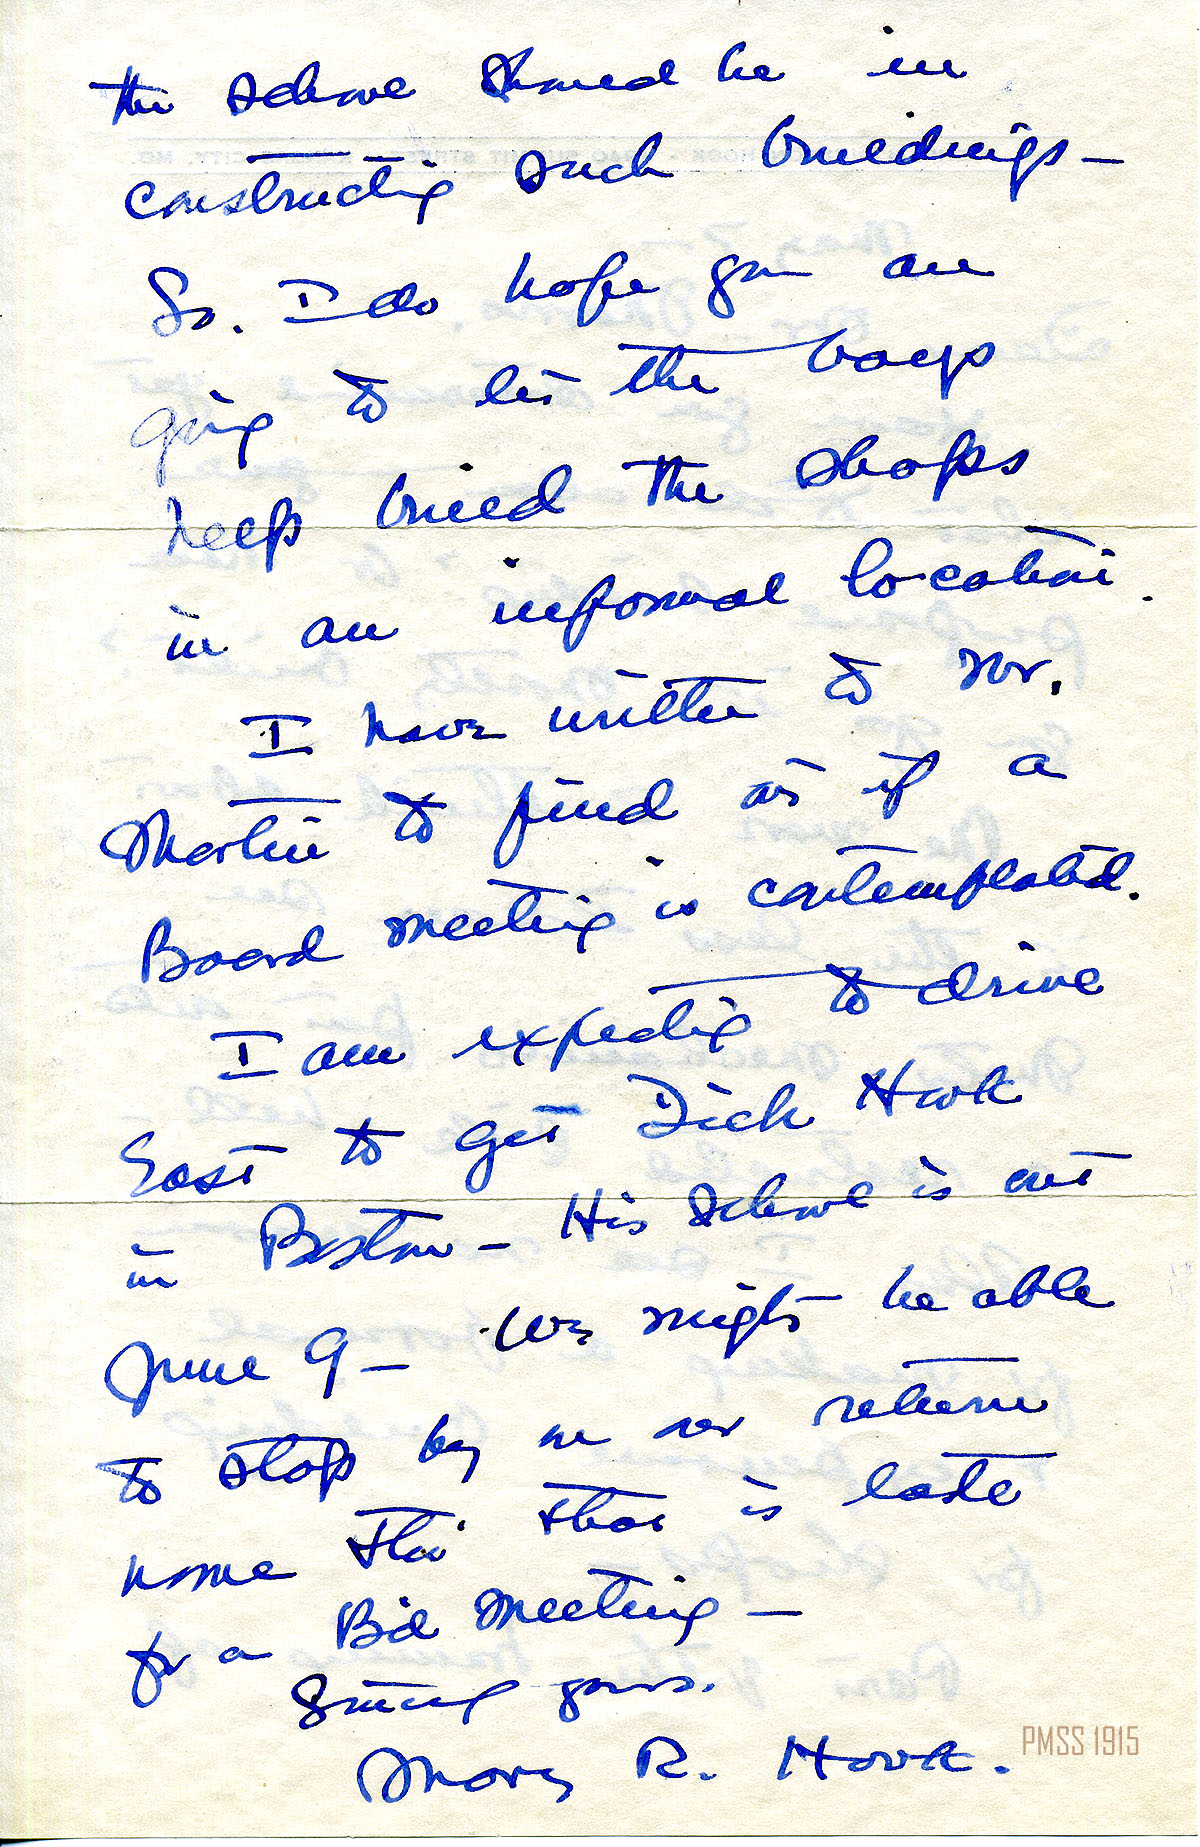 the school should be in
constructing such buildings —
So. I do hope you are
going to let the boys
help build the shops
in an informal location.
I have written to Mr.
Martin to find out if a
Board meeting is contemplated.
I am expecting to drive
East to get Dick Hook
in Boston — His school is out
June 9 — We might be able
to stop by on our return
home tho' that is late
for a Bd meeting —
yours.
Mary R. Hook.
PMSS 1915